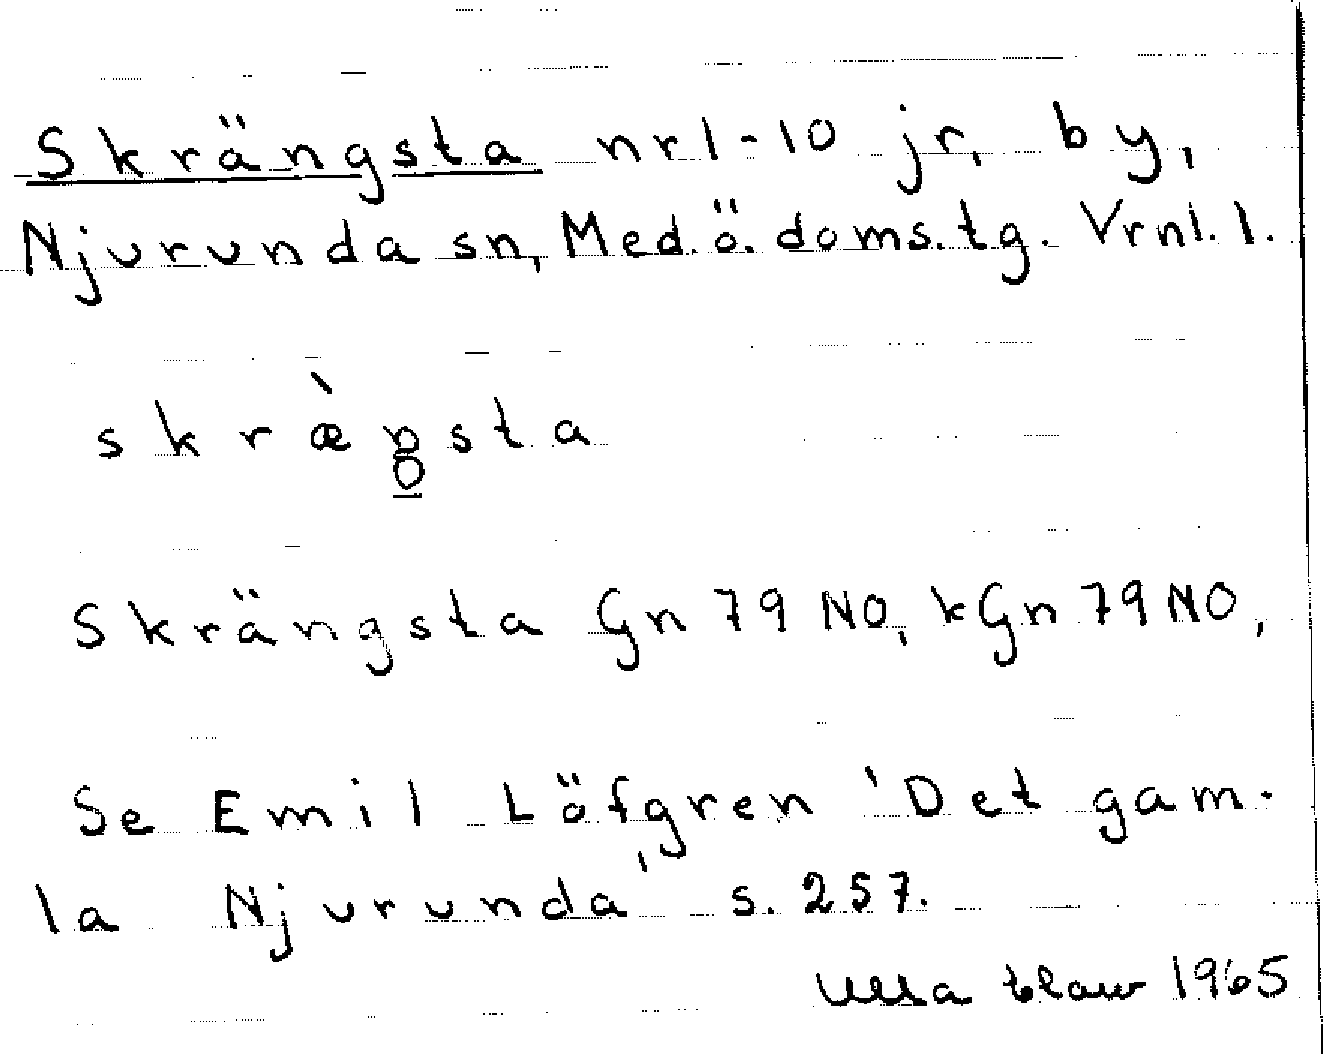 Skrängsta nr 1-10 jr, by,
Njurunda sn, Med.ö. doms.tg. Vrnl. l.
Skrängsta Gn 79 NO, kGn 79 NO,
Se Emil Löfgren 'Det gam-
la Njurunda' s. 257.
Ulla 1965